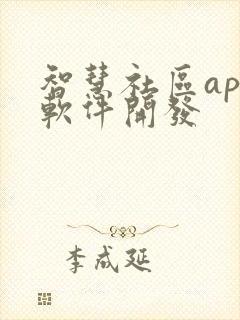 智慧社區ap
軟件開發
李成延